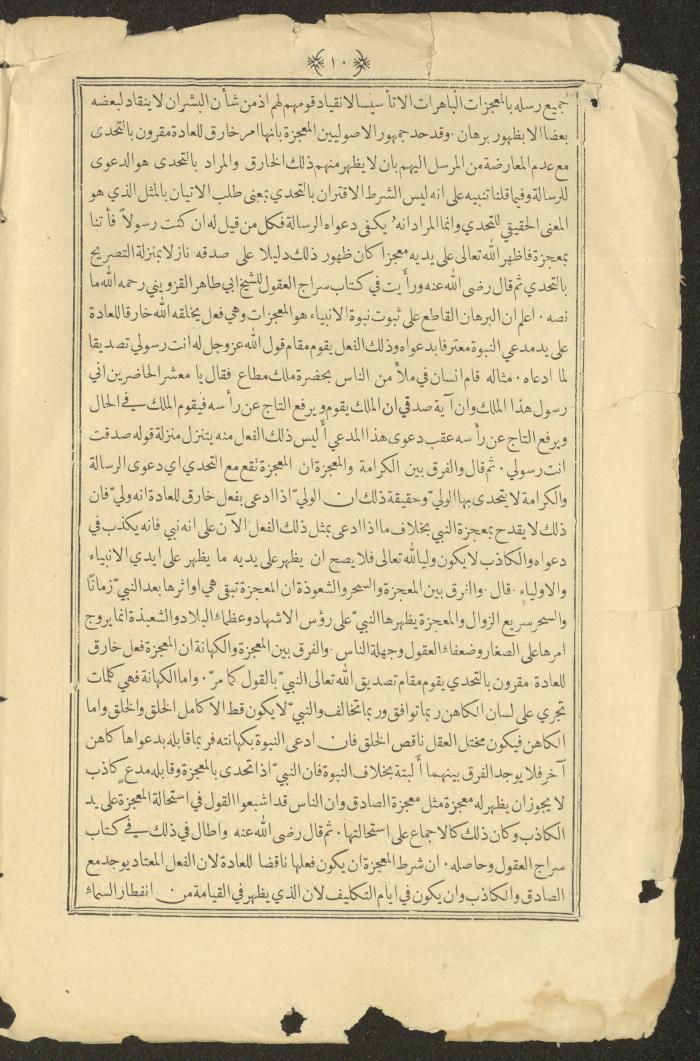 ١٠
جميع رسله بالمعجزات الباهرات الا تأسيسا لانقياد قومهم لهم اذ من شأن البشر ان لا ينقاد لبعضه
بعضا الا بظهور برهان ۰ وقد حد جمهور الاصوليين المعجزة بانها امر خارق للعادة مقرون بالتحدى
مع عدم المعارضة من المرسل اليهم بان لا يظهر منهم ذلك الخارق والمراد بالتحدى هو الدعوى
للرسالة وفيما قلنا تنبيه على انه ليس الشرط الاقتران بالتحدي بمعنى طلب الاتيان بالمثل الذي هو
المعنى الحقيقي للتحدي وانما المراد انه يكفى دعواه الرسالة فكل من قيل له ان كنت رسولاً فأتنا
بمعجزة فاظهر الله تعالى على يديه معجزا كان ظهور ذلك دليلا على صدقه نازلا بمنزلة التصريح
بالتحدي ثم قال رضى الله عنه ورأيت في كتاب سراج العقول للشيخ ابي طاهر القزويني رحمه الله ما
نصه ۰ اعلم ان البرهان القاطع على ثبوت نبوة الانبياء هو المعجزات وهي فعل يخلقه الله خارقا للعادة
على يد مدعي النبوة معترفا بدعواه وذلك الفعل يقوم مقام قول الله عز وجل له انت رسولي تصديقا
لما ادعاه ۰ مثاله قام انسان في ملأ من الناس بحضرة ملك مطاع فقال يا معشر الحاضرين اني
رسول هذا الملك وان آية صدقي ان الملك يقوم ويرفع التاج عن رأسه فيقوم الملك في الحال
ويرفع التاج عن رأسه عقب دعوى هذا المدعي أليس ذلك الفعل منه يتنزل منزلة قوله صدقت
انت رسولي ۰ ثم قال والفرق بين الكرامة والمعجزة ان المعجزة تقع مع التحدي اي دعوى الرسالة
والكرامة لا يتحدى بها الوليّ وحقيقة ذلك ان الوليّ اذا ادعى بفعل خارق للعادة انه وليّ فان
ذلك لا يقدح بمعجزة النبي بخلاف ما اذا ادعى بمثل ذلك الفعل الآن على انه نبي فانه يكذب في
دعواه والكاذب لا يكون وليا لله تعالى فلا يصح ان يظهر على يديه ما يظهر على ايدي الانبياء
والاولياء ۰ قال ۰ والفرق بين المعجزة والسحر والشعوذة ان المعجزة تبقى هي او اثرها بعد النبيّ زمانًا
والسحر سريع الزوال والمعجزة يظهرها النبيّ على رؤس الاشهاد وعظماء البلاد والشعبذة انما يروج
امرها على الصغار وضعفاء العقول وجهلة الناس ۰ والفرق بين المعجزة والكهانة ان المعجزة فعل خارق
للعادة مقرون بالتحدي يقوم مقام تصديق الله تعالى النبيّ بالقول كما مرّ ۰ واما الكهانة فهي كلمات
تجري على لسان الكاهن ربما توافق وربما تخالف والنبيّ لا يكون قط الا كامل الخلق والخلق واما
الكاهن فيكون مختل العقل ناقص الخلق فان ادعى النبوة بكهانته فربما قابله بدعواها كاهن
آخر فلا يوجد الفرق بينهما ألبتة بخلاف النبوة فان النبيّ اذا تحدى بالمعجزة وقابله مدعٍ كاذب
لا يجوز ان يظهر له معجزة مثل معجزة الصادق وان الناس قد اشبعوا القول في استحالة المعجزة على يد
الكاذب وكان ذلك كالاجماع على استحالتها ۰ ثم قال رضى الله عنه واطال في ذلك في كتاب
سراج العقول وحاصله ۰ ان شرط المعجزة ان يكون فعلها ناقضا للعادة لان الفعل المعتاد يوجد مع
الصادق والكاذب وان يكون في ايام التكليف لان الذي يظهر في القيامة من انفطار السماء